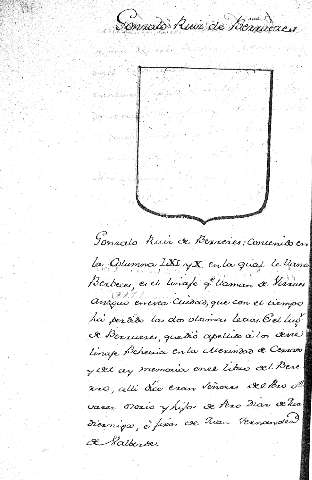 Gonzalo Ruiz de Berrueces
Gonzalo Ruiz de Berreres; Contenido en
la Columna LXI y X en la qual se llama
Berberes, es el linaje q.e llaman de
Antiguo en esta Ciudad, que con el tiempo
há perdido las dos ultimas letras. Del lug.r
de Berrueces, quedó apellido á los de este
linaje en la Merindad de Cerrato
y del ay memoria en el libro del Bece
rro, alli dia eran Señores del
y hijos de Pero Diaz de
ó fijos de Juan Fernandez
de Valverde.